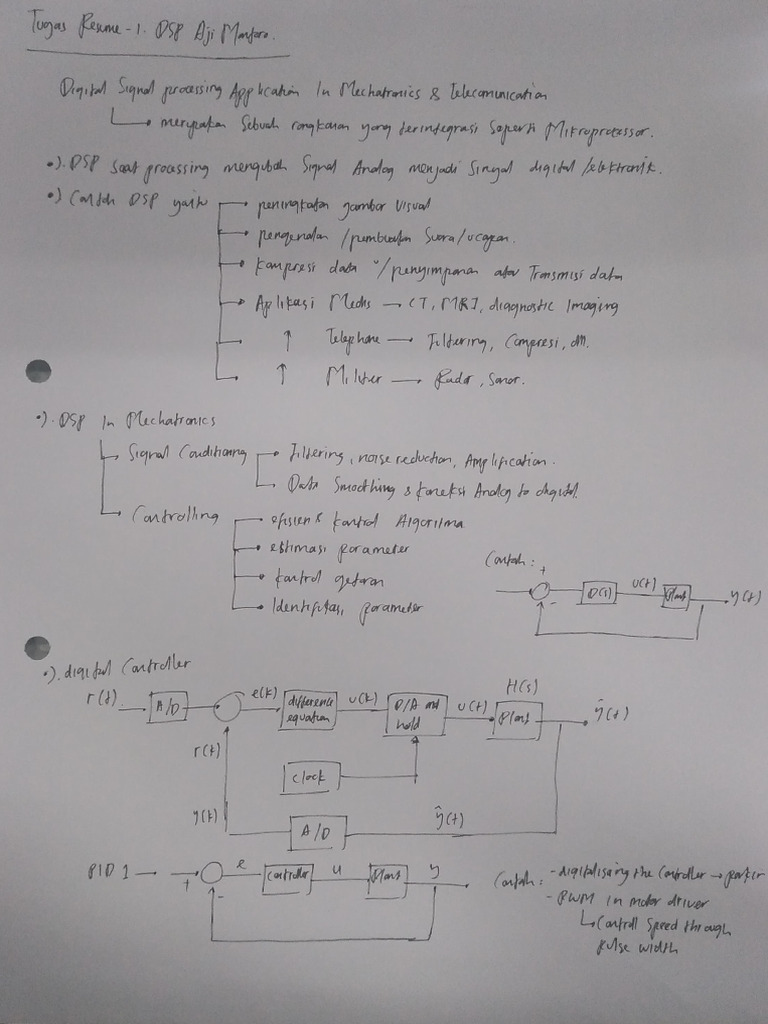 Tugas Resume - 1. DSP Aji
Digital Signal processing Application In Mechatronics & Telecomunication
merupakan Sebuah rangkaian yang terintegrasi Seperti Mikroprosessor.
•). DSP saat processing mengubah Signal Analog menjadi Sinyal digital /elektronik.
•) Contoh DSP yaitu
peningkatan gambar visual
pengenalan /pembuatan Suara/ucapan.
kompresi data u/penyimpanan atau Transmisi data
Aplikasi Medis → CT, MRI, diagnostic Imaging
↑ Telephone → Filtering, Compresi, dll.
↑ Militer → Radar, Sonar.
•). DSP In Mechatronics
Signal Conditioning
Filtering, noise reduction, Amplification.
Data Smoothing & Koneksi Analog to digital.
Controlling
efisien & kontrol Algoritma
estimasi parameter
kontrol getaran
Identifikasi parameter
Contoh :
+ - D(s) U(t) Plant y(t)
•). digital Controller
H(s)
r(t) A/D e(k) difference equation u(k) D/A and hold u(t) Plant ŷ(t)
r(t)
clock
y(t) A/D ŷ(t)
PID 1 → + - e Controller u Plant y
Contoh : - digitalising the Controller →
- PWM in motor driver
Controll Speed through
pulse width